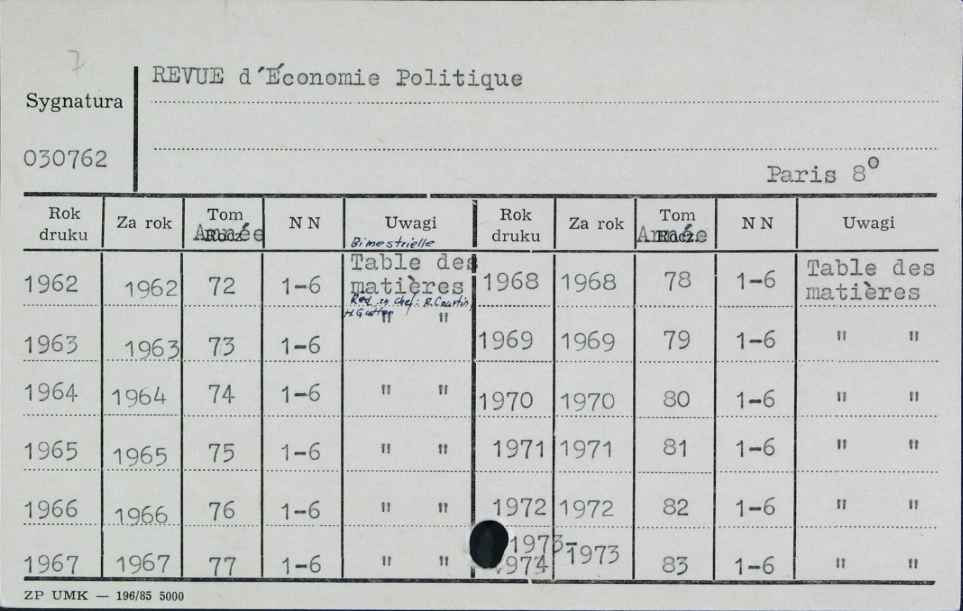 7
REVUE d'Économie Politique
Sygnatura
030762
Paris 8°
Rok druku Za rok Tom Année N N Uwagi Rok druku Za rok Tom Année N N Uwagi
Bimestrielle
1962 1962 72 1-6 Table des matières 1968 1968 78 1-6 Table des matières
Réd. en chef: R. Courtin,
1963 1963 73 1-6 " " 1969 1969 79 1-6 " "
1964 1964 74 1-6 " " 1970 1970 80 1-6 " "
1965 1965 75 1-6 " " 1971 1971 81 1-6 " "
1966 1966 76 1-6 " " 1972 1972 82 1-6 " "
1967 1967 77 1-6 " " 1973-1974 1973 83 1-6 " "
ZP UMK — 196/85 5000